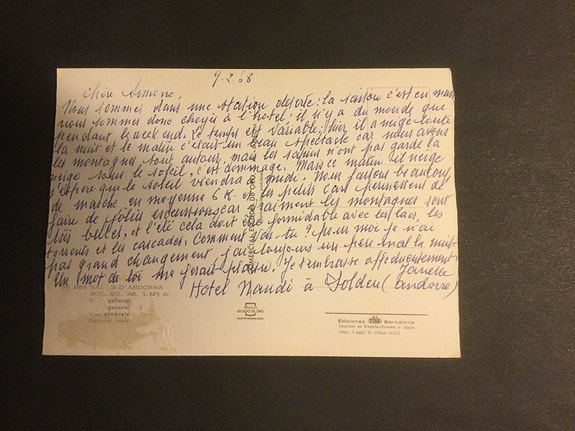 9.2.68
Chère Simone,
Nous sommes dans une station déserte : la saison c'est en mars
nous sommes donc choyés à l'hôtel ; il n'y a du monde que
pendant le week end. Le temps est variable, hier il a neigé toute
la nuit et le matin c'était un beau spectacle car nous avons
les montagnes tout autour, mais les sapins n'ont pas gardé la
neige sous le soleil, c'est dommage. Mais ce matin il neige
j'espère que le soleil viendra à midi. Nous faisons beaucoup
de marche en moyenne 6 K. les petits cars permettent de
faire de jolies excursions car vraiment les montagnes sont
très belles, et l'été cela doit être formidable avec les lacs, les
torrents et les cascades. Comment vas tu ? pour moi je n'ai
pas grand changement, j'ai toujours un peu mal la nuit
Un mot de toi me ferait plaisir. Je t'embrasse affectueusement
Hotel Naudi à Soldeu (Andorre)
D'ANDORRA
Alt. 1.825 m.
general
general
générale
general view
ESCUDO DE ORO
Ediciones Barcelona